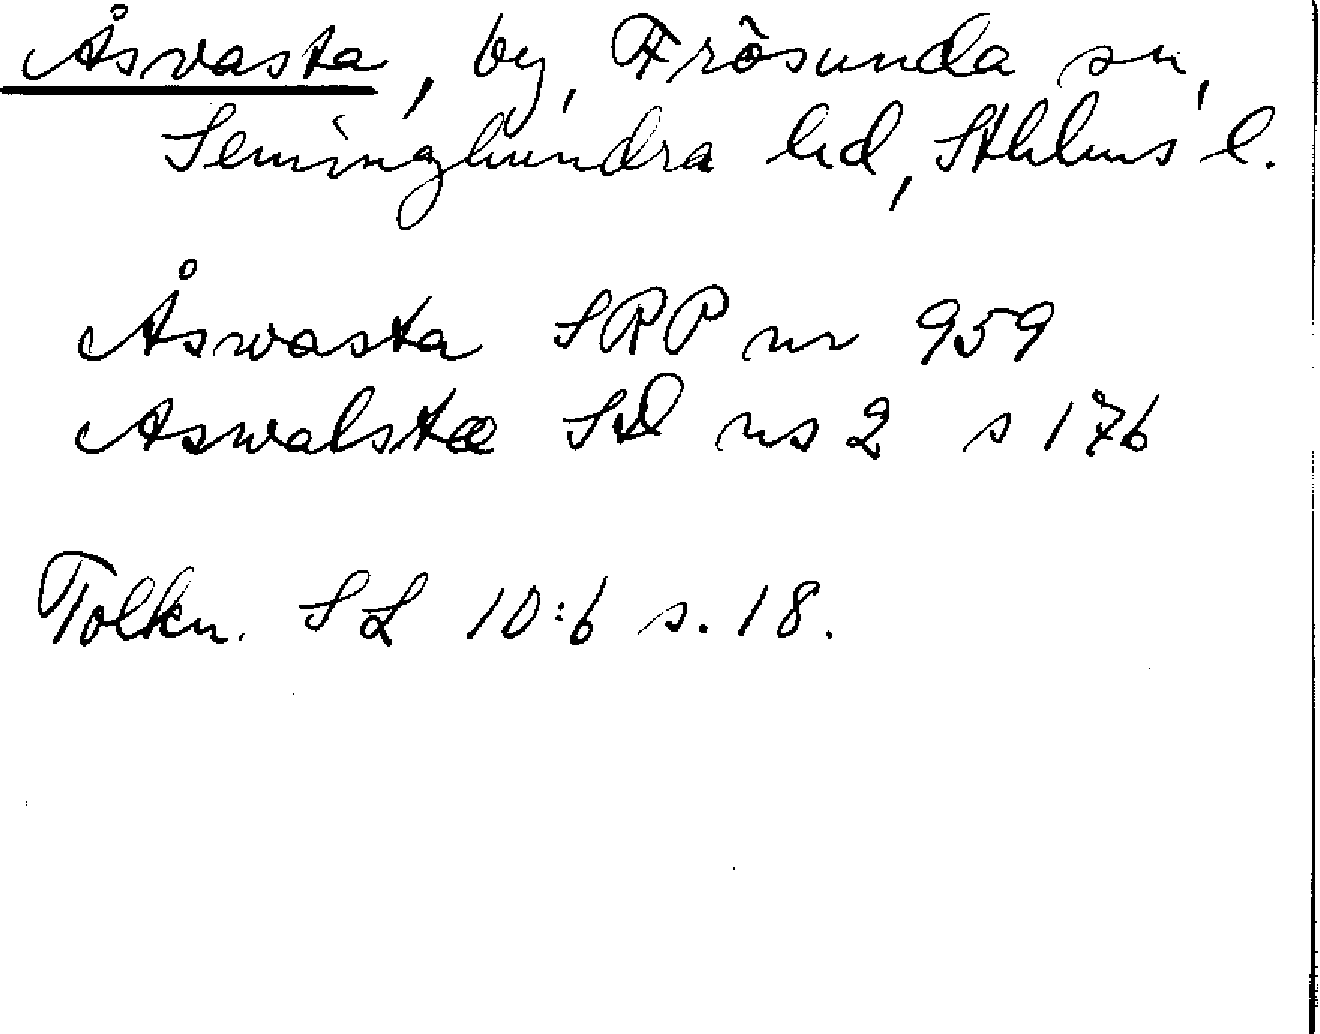 Åsvasta, by, Frösunda sn,
Seminghundra hd, Sthlms l.
Åswasta SRP nr 959
Aswalstæ SD ns 2 s 176
Tolkn. SL 10:6 s. 18.